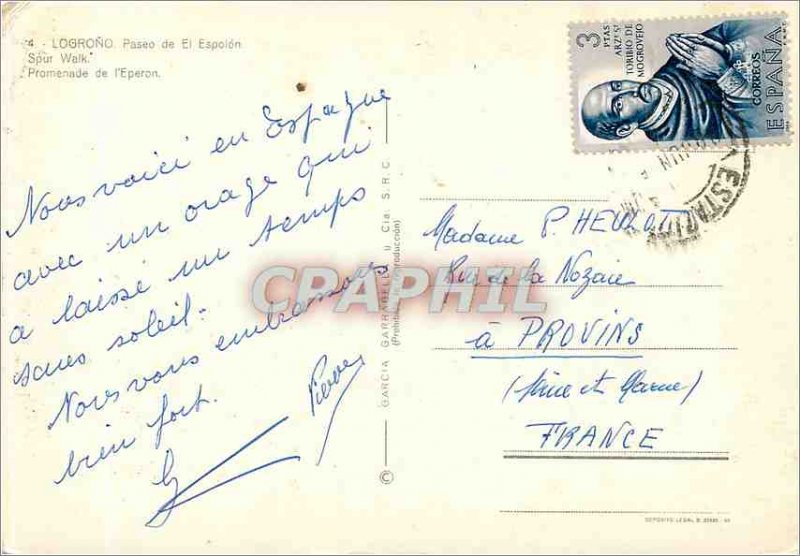 4 - LOGROÑO. Paseo de El Espolón
Spur Walk.
Promenade de l'Eperon.
Nous voici en Espagne
avec un orage qui
a laissé un temps
sans soleil.
Nous vous embrassons
bien fort.
Pierre
GARCIA GARRABELLA y Cia. S.R.C.
(Prohibida la reproducción)
©
3
PTAS
ARZBSPO
TORIBIO DE
MOGROVEJO
CORREOS
ESPAÑA
Madame P. HEUZOTTE
Rue de la Nozaie
à PROVINS
(Seine et Marne)
FRANCE
CRAPHIL
DEPOSITO LEGAL B.